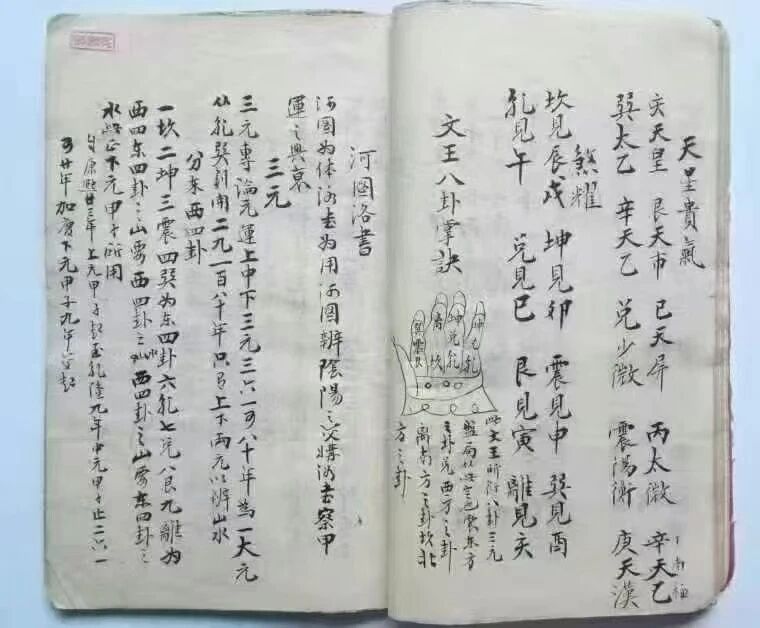 天星貴氣
亥天皇 艮天市 巳天屏 丙太微 辛天乙 丁南極
巽太乙 辛天乙 兌少微 震陽衡 庚天漢
煞耀
坎見辰戌 坤見卯 震見申 巽見酉
乾見午 兌見巳 艮見寅 離見亥
文王八卦掌訣
坤兌乾
離
坎
此文王所衍八卦三元
三卦兌西方之卦
離南方之卦坎北
方之卦
河圖洛書
河圖为体洛书为用河圖辨陰陽之交媾洛书察甲
運之興衰
三元
三元專論元運上中下三元三六一百八十年爲一大元
以乾巽 用二九一百八十年只 上下两元以辨山水
分东西四卦
一坎二坤三震四巽为东四卦六乾七兌八艮九離为
西四东四卦之山要西四卦之水西四卦之山要东四卦之
水 下元甲子所用
康熙廿三年上元甲子起至乾隆九年中元甲子止二六一
百廿年加 下元甲子九年